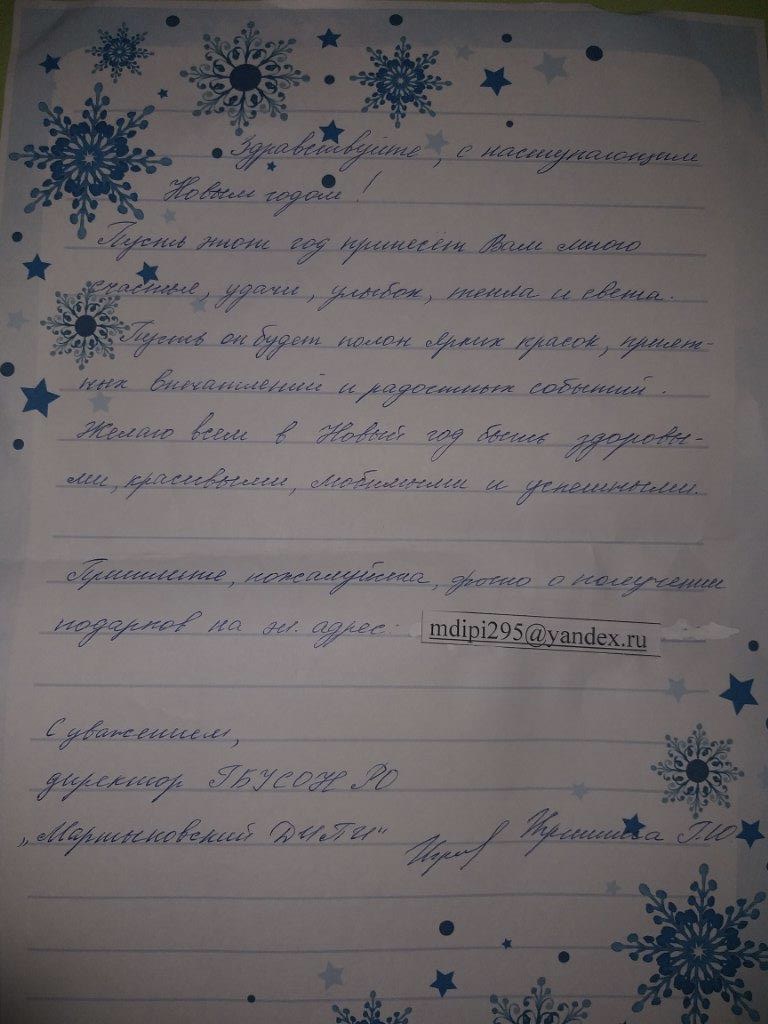 Здравствуйте, с наступающим
Новым годом!
Пусть этот год принесёт Вам много
счастья, удачи, улыбок, тепла и света.
Пусть он будет полон ярких красок, прият-
ных впечатлений и радостных событий.
Желаю всем в Новый год быть здоровы-
ми, красивыми, любимыми и успешными.
Пришлите, пожалуйста, фото о получении
подарков на эл. адрес: mdipi295@yandex.ru
С уважением,
директор ГБУСОН РО
„Мартыновский ДИПИ" Г.Ю